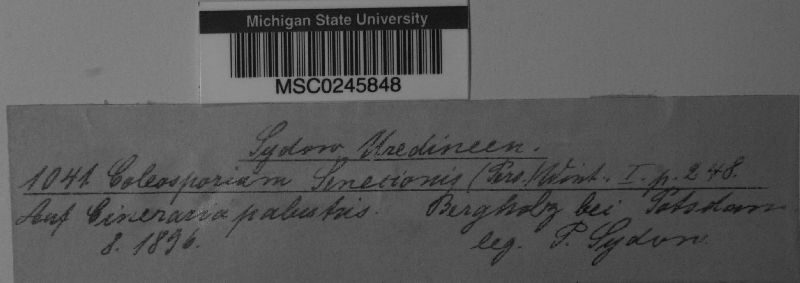 Michigan State University
MSC0245848
Sydow Uredineen.
1041 Coleosporium Senecionis (Pers.) Wint. I. p. 248.
Auf Cineraria palustris. Bergholz bei Potsdam
8. 1896. leg. P. Sydow.